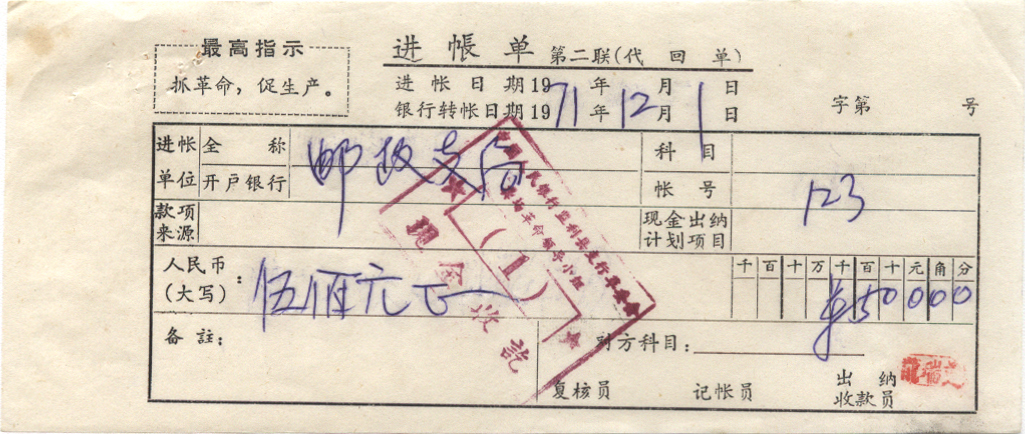 最高指示
抓革命，促生产。
进帳单 第二联(代回单)
进帐日期19 年 月 日
银行转帐日期1971年12月1日
字第 号
进帐单位
全称 邮政支局
开户银行
科目
帐号 123
款项来源
现金出纳计划项目
人民币(大写): 伍佰元正
千百十万千百十元角分
¥50000
备註:
对方科目:
复核员
记帐员
出纳收款员
行革委会
革命领导小组
(1)
现金收訖